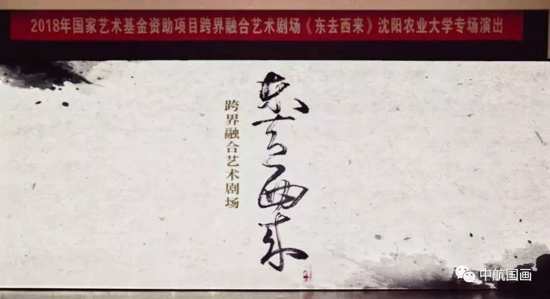 2018年国家艺术基金资助项目跨界融合艺术剧场《东去西来》沈阳农业大学专场演出
东去西来
跨界融合艺术剧场
中航国画